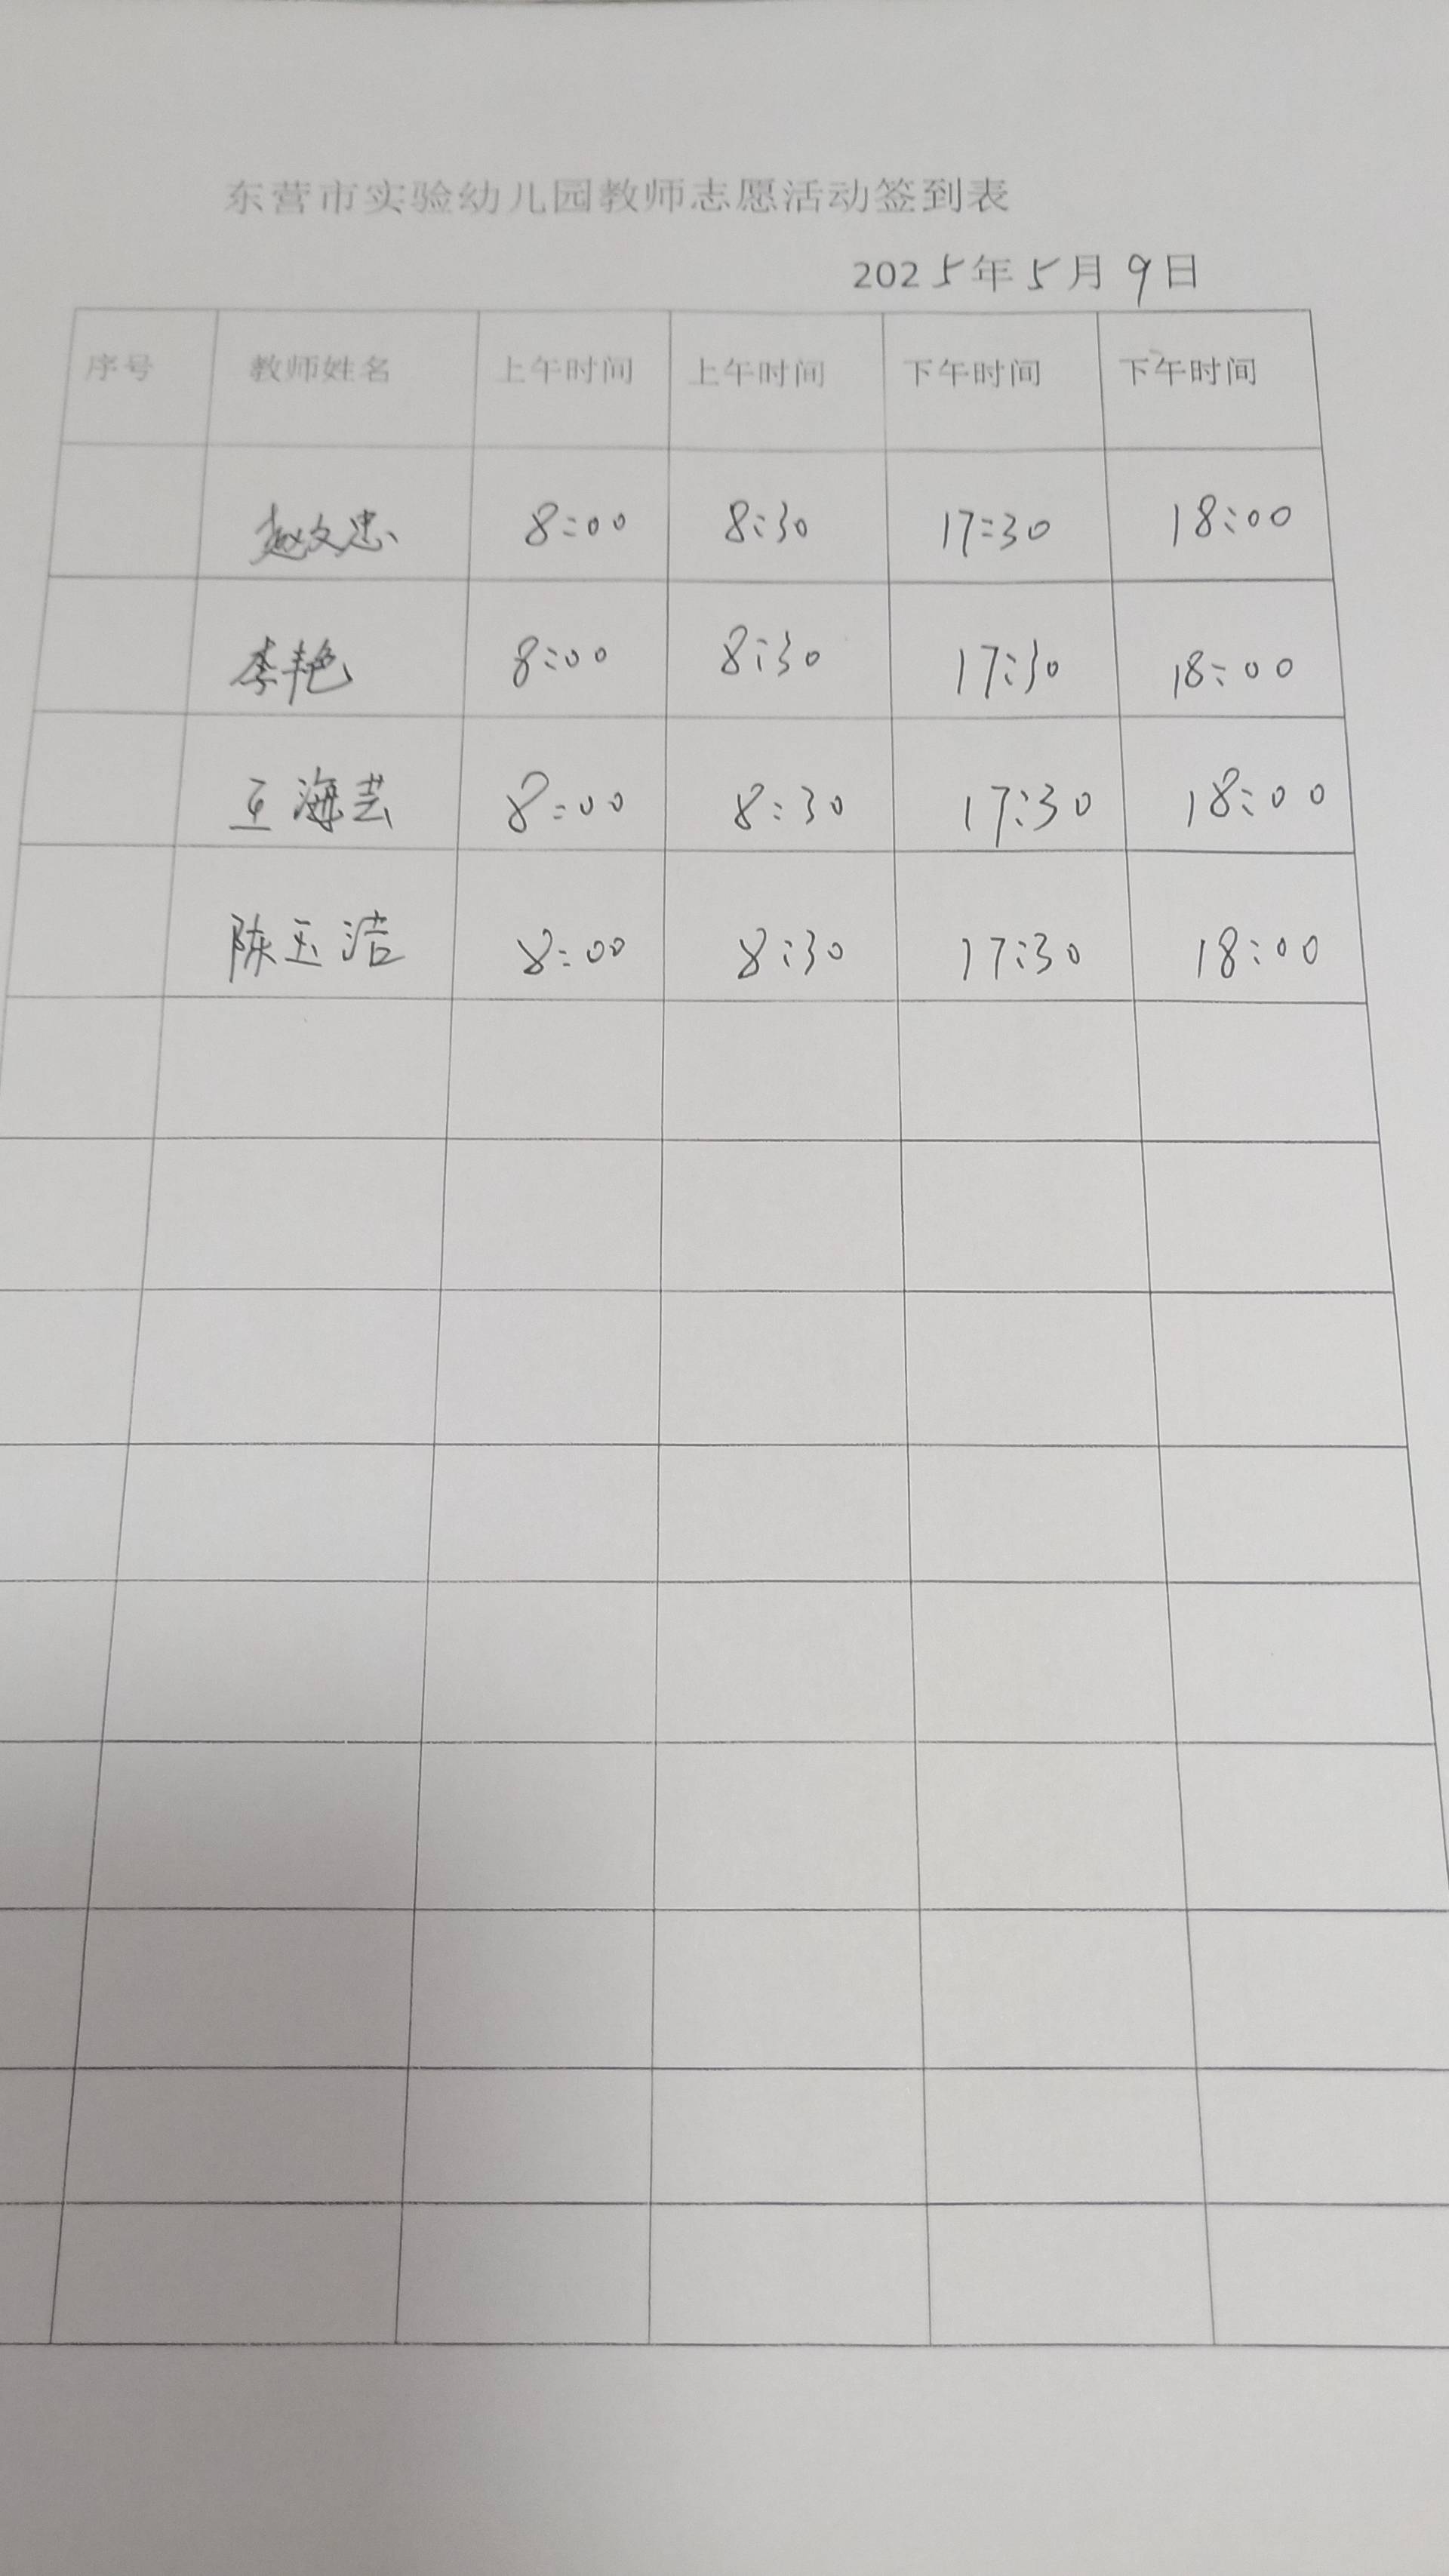 东营市实验幼儿园教师志愿活动签到表
2025年5月9日
序号 教师姓名 上午时间 上午时间 下午时间 下午时间
赵文忠 8:00 8:30 17:30 18:00
李艳 8:00 8:30 17:30 18:00
王海芸 8:00 8:30 17:30 18:00
陈玉洁 8:00 8:30 17:30 18:00